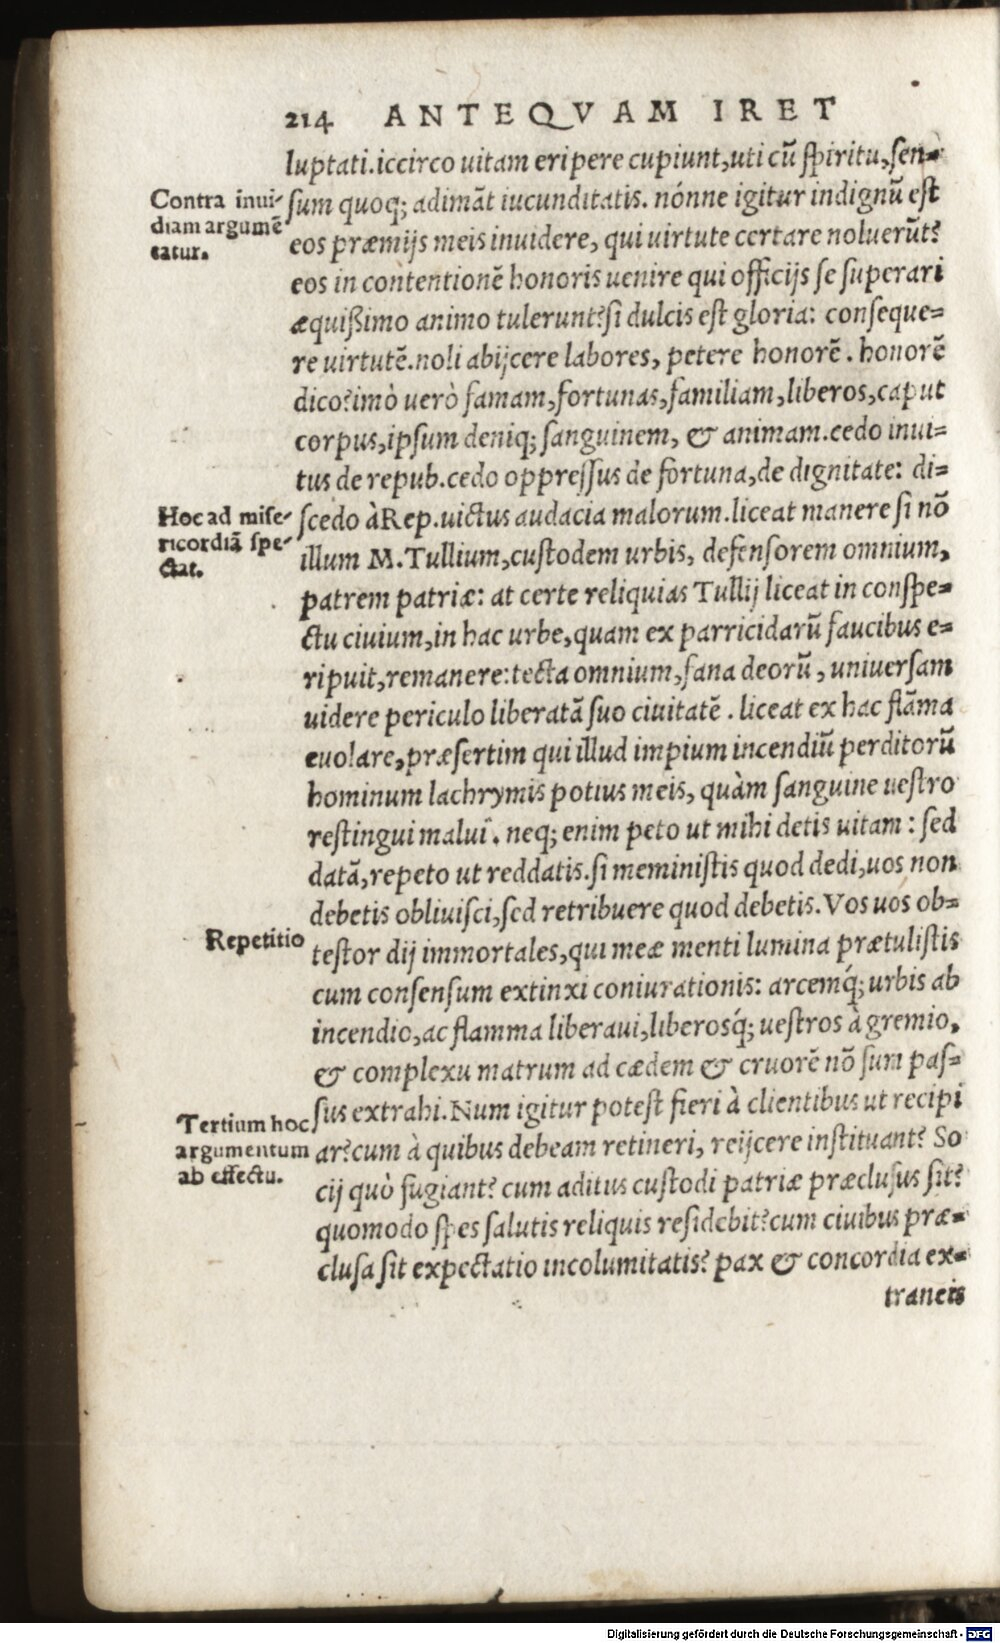 214 ANTEQVAM IRET
luptati.iccirco uitam eripere cupiunt,uti cū spiritu,sen=
Contra inui-
diam argumē
tatur.
sum quoq; adimāt iucunditatis. nónne igitur indignū est
eos præmijs meis inuidere, qui uirtute certare noluerūt?
eos in contentionē honoris uenire qui officijs se superari
æquißimo animo tulerunt?si dulcis est gloria: conseque=
re uirtutē.noli abijcere labores, petere honorē. honorē
dico?imò uerò famam,fortunas,familiam,liberos,caput
corpus,ipsum deniq; sanguinem, & animam.cedo inui=
tus de repub.cedo oppressus de fortuna,de dignitate: di=
Hoc ad mise-
ricordiā spe-
ctat.
scedo àRep.uictus audacia malorum.liceat manere si nō
illum M.Tullium,custodem urbis, defensorem omnium,
patrem patriæ: at certe reliquias Tullij liceat in conspe=
ctu ciuium,in hac urbe,quam ex parricidarū faucibus e=
ripuit,remanere:tecta omnium,fana deorū, uniuersam
uidere periculo liberatā suo ciuitatē. liceat ex hac flāma
euolare,præsertim qui illud impium incendiū perditorū
hominum lachrymis potius meis, quàm sanguine uestro
restingui malui. neq; enim peto ut mihi detis uitam: sed
datā,repeto ut reddatis.si meministis quod dedi,uos non
debetis obliuisci,sed retribuere quod debetis.Vos uos ob=
Repetitio
testor dij immortales,qui meæ menti lumina prætulistis
cum consensum extinxi coniurationis: arcemq́; urbis ab
incendio,ac flamma liberaui,liberosq́; uestros à gremio,
& complexu matrum ad cædem & cruorē nō sum pas=
Tertium hoc
argumentum
ab effectu.
sus extrahi.Num igitur potest fieri à clientibus ut recipi
ar?cum à quibus debeam retineri, reijcere instituant? So
cij quò fugiant? cum aditus custodi patriæ præclusus sit?
quomodo spes salutis reliquis residebit?cum ciuibus præ=
clusa sit expectatio incolumitatis? pax & concordia ex=
traneis
Digitalisierung gefördert durch die Deutsche Forschungsgemeinschaft - DFG